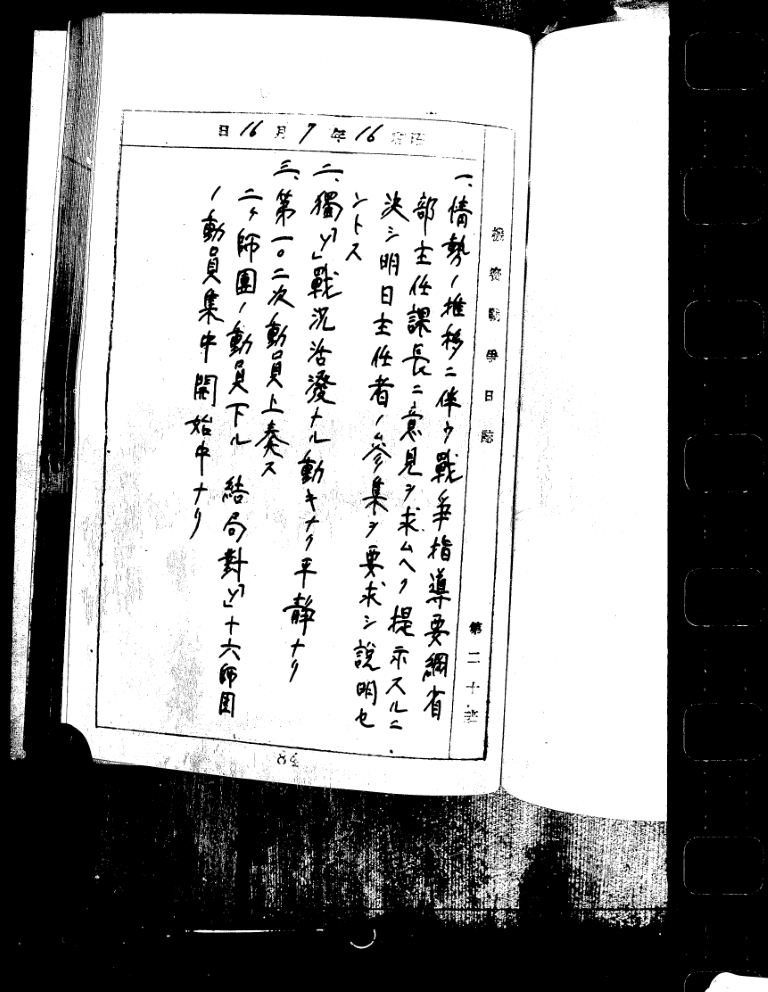 機密戰爭日誌
第二十班
昭和16年7月16日
一、情勢ノ推移ニ伴フ戰爭指導要綱省
部主任課長ニ意見ヲ求ムヘク提示スルニ
決シ明日主任者ノ參集ヲ要求シ説明セ
ントス
二、獨「ソ」戰況活溌ナル動キナク平靜ナリ
三、第一〇二次動員上奏ス
二ヶ師團ノ動員下ル 結局對「ソ」十六師団
ノ動員集中開始中ナリ
84